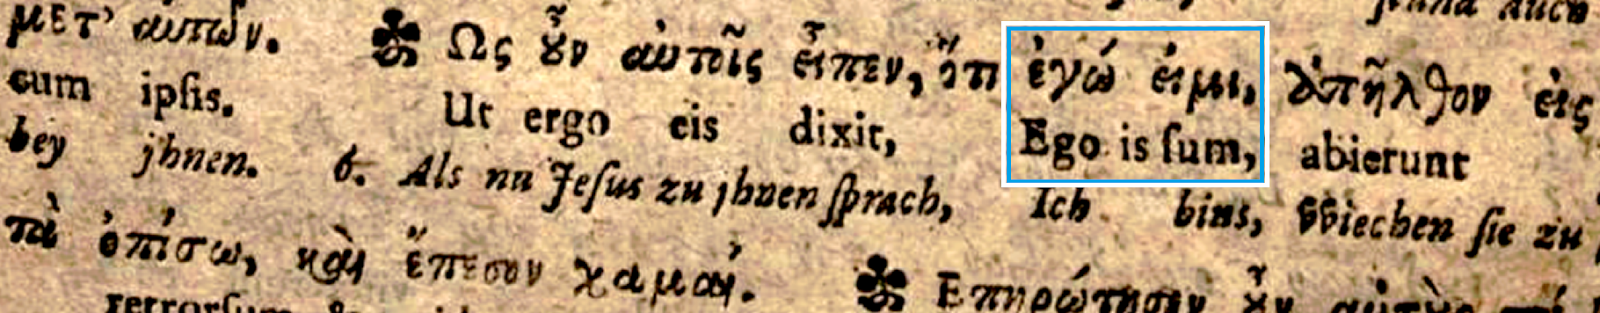 μετ' αὐτῶν. Ως ȣ̃ν αὐτοῖς εἶπεν, ὅτι ἐγώ εἰμι, ἀπῆλθον εἰς
cum ipſis. Ut ergo eis dixit, Ego is ſum, abierunt
bey jhnen. 6. Als nu Jeſus zu jhnen ſprach, Ich bins, VViechen ſie zu
τὰ ὀπίσω, καὶ ἔπεσον χαμαί. Επηρώτησεν ȣ̃ν